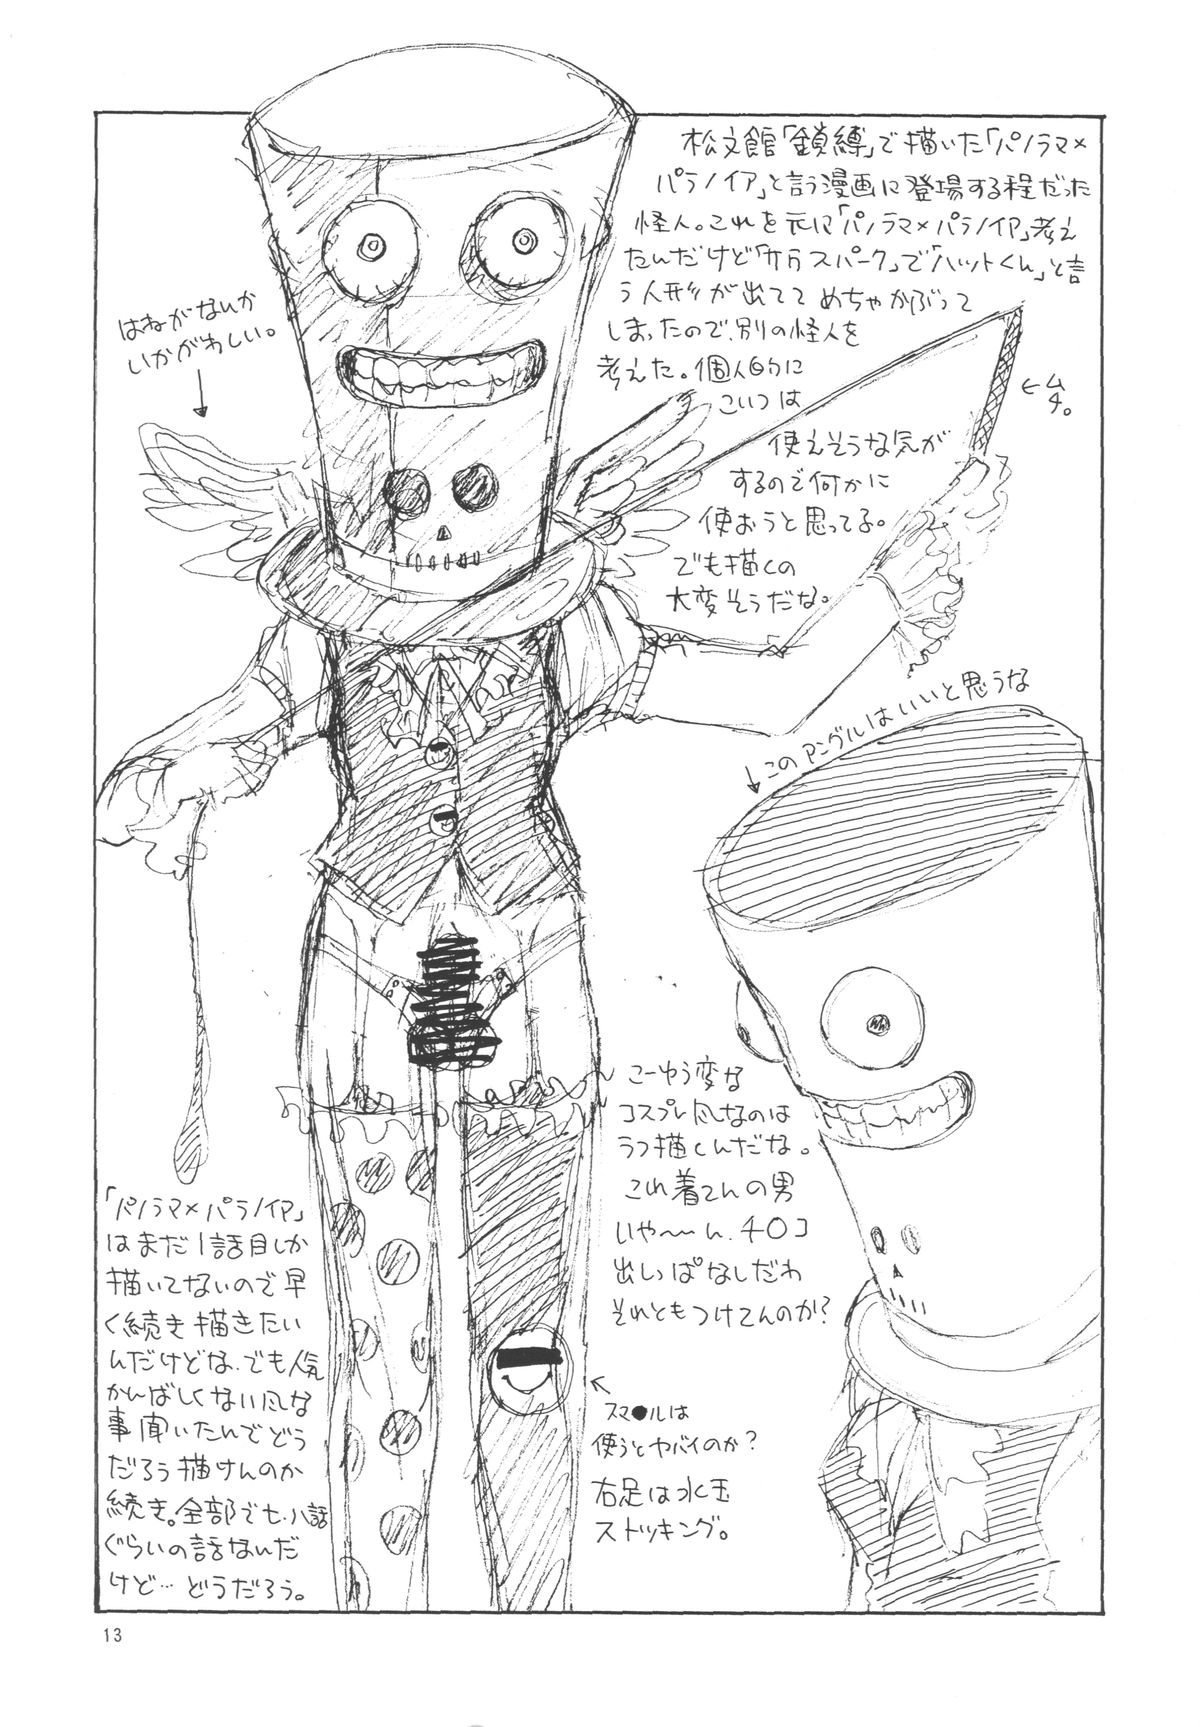 松文館「鎖縛」で描いた「パノラマ×
パラノイア」と言う漫画に登場する程だった
怪人。これを元に「パノラマ×パラノイア」考え
たんだけど「サガスパーク」で「ハットくん」と言
う人形が出ててめちゃかぶって
しまったので、別の怪人を
考えた。個人的に
こいつは
使えそうな気が
するので何かに
使おうと思ってる。
でも描くの
大変そうだな。
はねがなんか
いかがわしい。
←ムチ。
このアングルはいいと思うな
こーゆう変な
コスプレ風なのは
ラフ描くんだな。
これ着てんの男
いや〜ん、チ○コ
出しっぱなしだわ
それともつけてんのか?
スマ●ルは
使うとヤバイのか?
右足は水玉
ストッキング。
「パノラマ×パラノイア」
はまだ1話目しか
描いてないので早
く続き描きたい
んだけどな、でも人気
かんばしくない風な
事聞いたんでどう
だろう描けんのか
続き。全部でも、八話
ぐらいの話なんだ
けど…どうだろう。
13